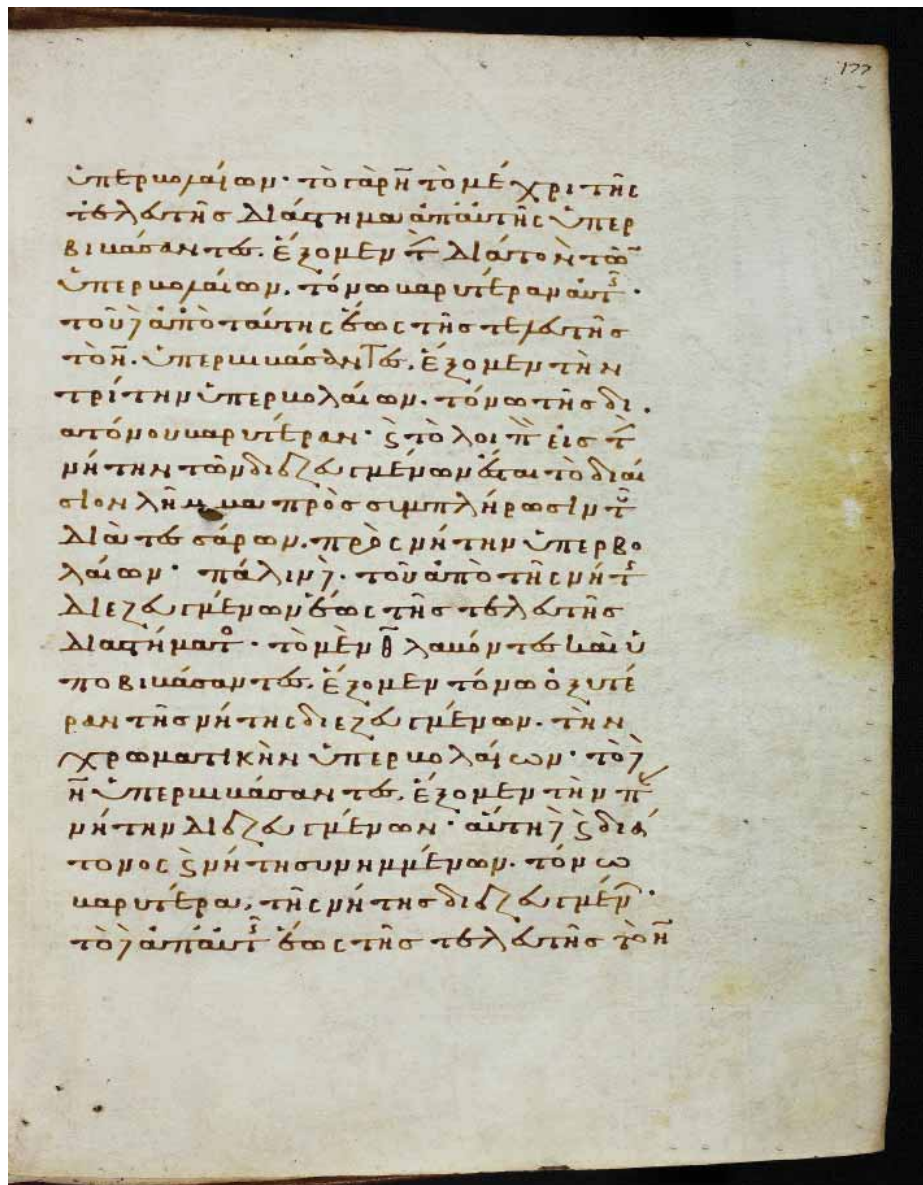 177
ὑπερβολαίων· τὸ γὰρ η̄ τὸ μέχρι τῆς
τελευτῆς διάστημα ἀπ' αὐτῆς ὑπερ
βιβάσαντες, ἕξομεν τ̄ διάτονον τῶ̄
ὑπερβολαίων, τόνω βαρυτέραν αὐτ̄·
τοῦ δ' ἀπὸ ταύτης ἕως τῆς τελευτῆς
τὸ η̄, ὑπερβιβάσαντες, ἕξομεν τὴν
τρίτην ὑπερβολαίων, τόνω τῆς δι
ατόνου βαρυτέραν· ϗ τὸ λοιπ̄ εἰς τ̄
νήτην τῶν διεζευγμένων ἔσται τὸ διαί
σιον λῆμμα πρὸς συμπλήρωσιν τ̄
διὰ τεσσάρων, πρὸς νήτην ὑπερβο
λαίων· πάλιν δ' τοῦ ἀπὸ τῆς νήτ̄
διεζευγμένων ἕως τῆς τελευτῆς
διαστήματ̄· τὸ μὲν θ̄ λαβόντες καὶ ὑ
ποβιβάσαντες, ἕξομεν τόνω ὀξυτέ
ραν τῆς νήτης διεζευγμένων, τὴν
χρωματικὴν ὑπερβολαίων· τὸ δ'
η̄ ὑπερβιβάσαντες, ἕξομεν τὴν π̄
νήτην διεζευγμένων· αὕτη δ' ϗ διά
τονος ϗ νήτη συνημμένων, τόνω
βαρυτέρα, τῆς νήτης διεζευγμέν̄·
τὸ δ' ἀπ' αὐτ̄ ἕως τῆς τελευτῆς τὸ η̄